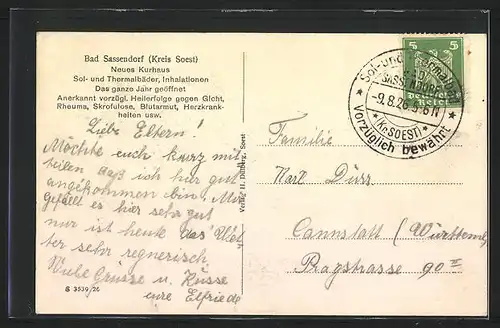 Bad Sassendorf (Kreis Soest)
Neues Kurhaus
Sol- und Thermalbäder, Inhalationen
Das ganze Jahr geöffnet
Anerkannt vorzügl. Heilerfolge gegen Gicht,
Rheuma, Skrofulose, Blutarmut, Herzkrank-
heiten usw.
Liebe Eltern!
Möchte euch kurz mit
teilen daß ich hier gut
angekommen bin. Mir
gefällt es hier sehr gut
nur ist heute das Wet-
ter sehr regnerisch
Viele Grüsse u. Küsse
eure Elfriede
S 3539/26
Verlag H. Dülberg, Soest
5 5
Deutsches
Reich
Sol- und Thermalbad
BAD
SASSENDORF
-9.8.26
(Kr. SOEST)
Vorzüglich bewährt
Familie
Karl Dürr
Cannstatt (Württemb)
Ragstrasse 90 II